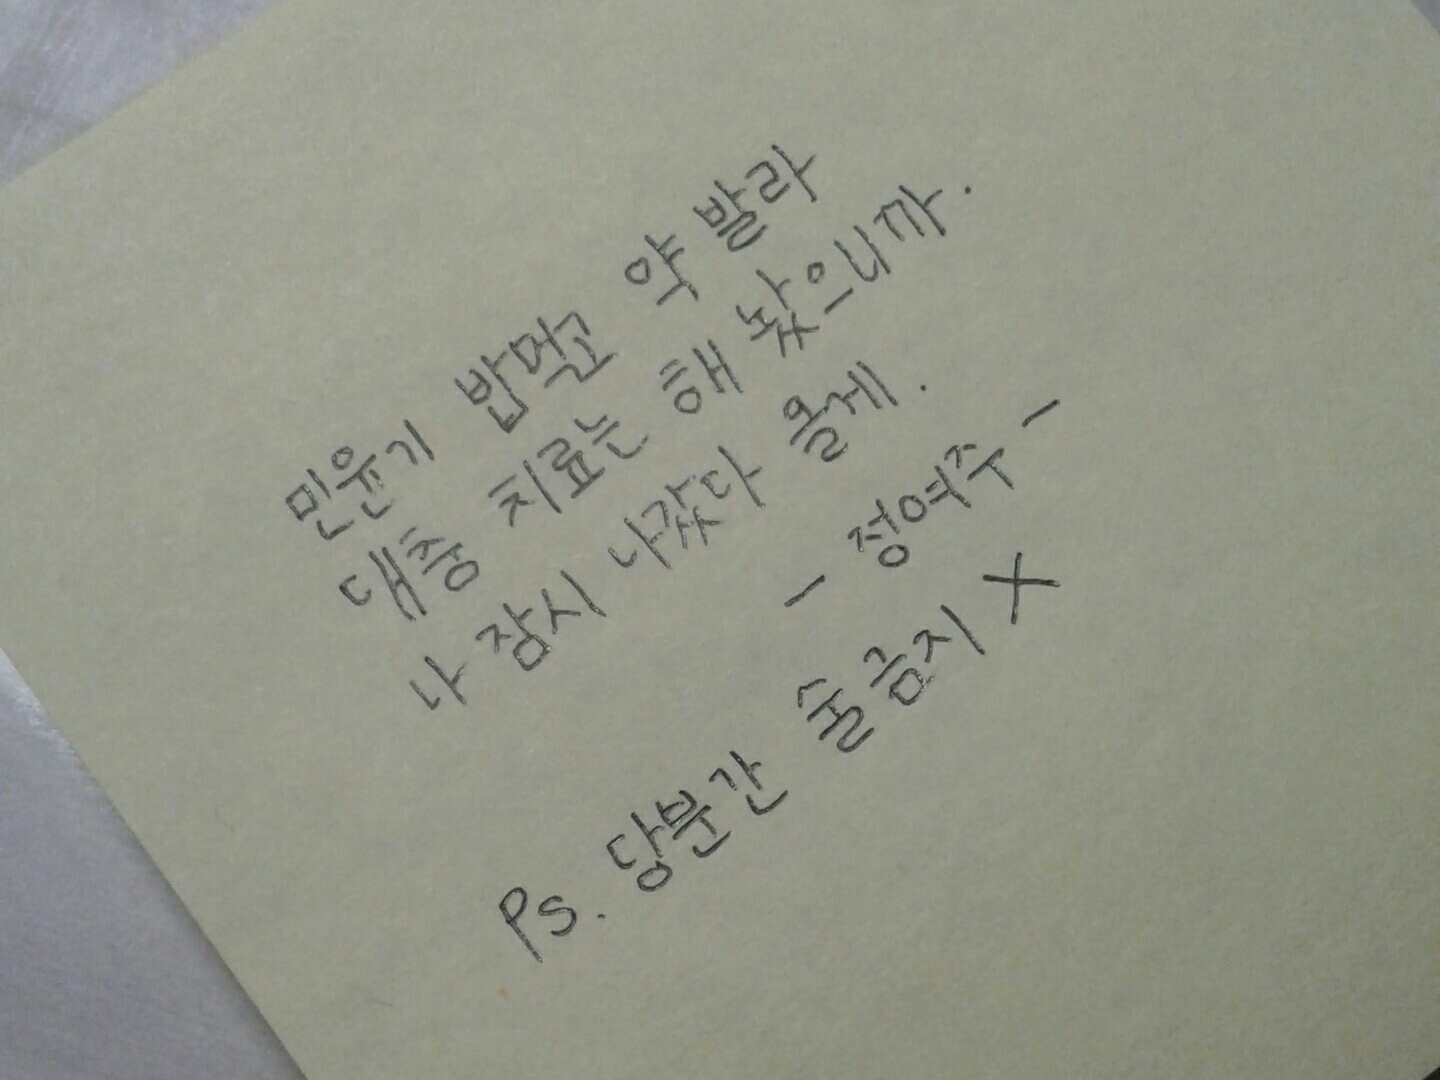 민윤기 밥먹고 약 발라
대충 치료는 해 놨으니까.
나 잠시 나갔다 올게.
- 정여주 -
Ps. 당분간 술금지 X